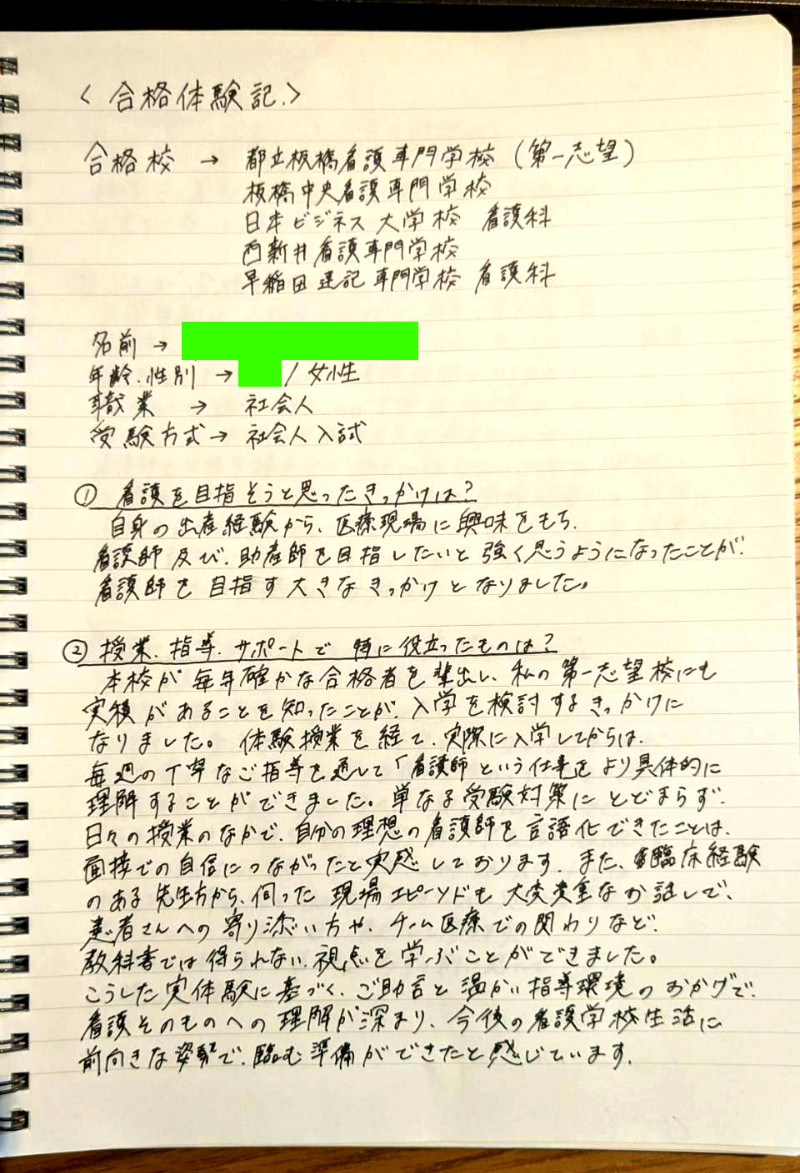 <合格体験記.>
合格校 → 都立板橋看護専門学校 (第一志望)
板橋中央看護専門学校
日本ビジネス大学校 看護科
西新井看護専門学校
早稲田速記専門学校 看護科
名前 →
年齢.性別 → / 女性
職業 → 社会人
受験方式 → 社会人入試
① 看護を目指そうと思ったきっかけは?
自身の出産経験から、医療現場に興味をもち、
看護師及び、助産師を目指したいと強く思うようになったことが、
看護師を目指す大きなきっかけとなりました。
② 授業、指導、サポートで特に役立ったものは?
本校が毎年確かな合格者を輩出し、私の第一志望校にも
実績があることを知ったことが、入学を検討するきっかけに
なりました。体験授業を経て、実際に入学してからは、
毎週の丁寧なご指導を通して「看護師という仕事をより具体的に
理解することができました。単なる受験対策にとどまらず、
日々の授業のなかで、自分の理想の看護師を言語化できたことは、
面接での自信につながったと実感しております。また、臨床経験
のある先生方から、伺った現場エピソードも大変貴重なお話しで、
患者さんへの寄り添い方や、チーム医療での関わりなど、
教科書では得られない視点を学ぶことができました。
こうした実体験に基づく、ご助言と温かい指導環境のおかげで、
看護そのものへの理解が深まり、今後の看護学校生活に
前向きな姿勢で、臨む準備ができたと感じています。